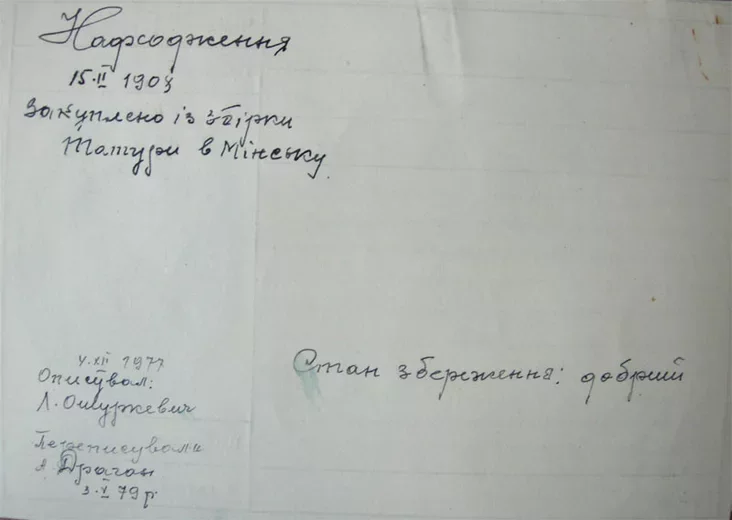 Надходження
15·II 1908
Закуплено із збірки
Татури в Мінську
4.XII 1977
Описувал:
Л. Ошуркевич
Стан збереження: добрий
Переписувал
Драган
3·V 79 р.